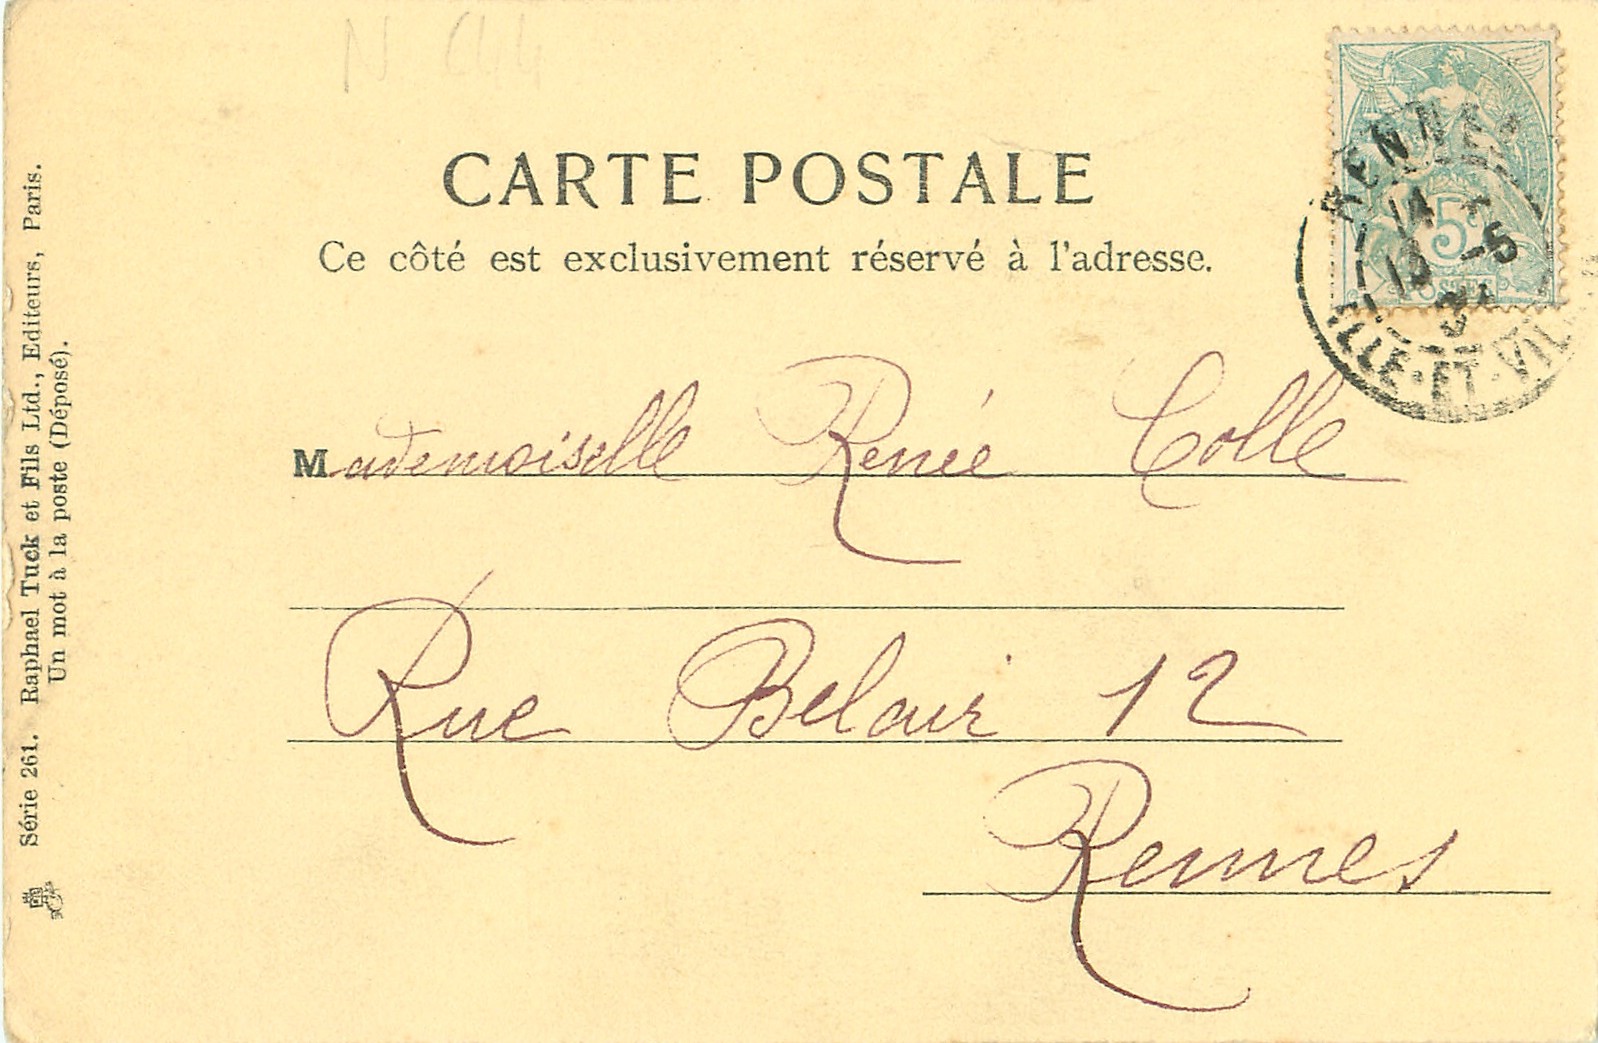 CARTE POSTALE
Ce côté est exclusivement réservé à l'adresse.
Mademoiselle Renée Colle
Rue Belair 12
Rennes
Série 261. Raphael Tuck et Fils Ltd., Editeurs, Paris.
Un mot à la poste (Déposé).
RENNES
13 -5
ILLE-ET-VIL
5